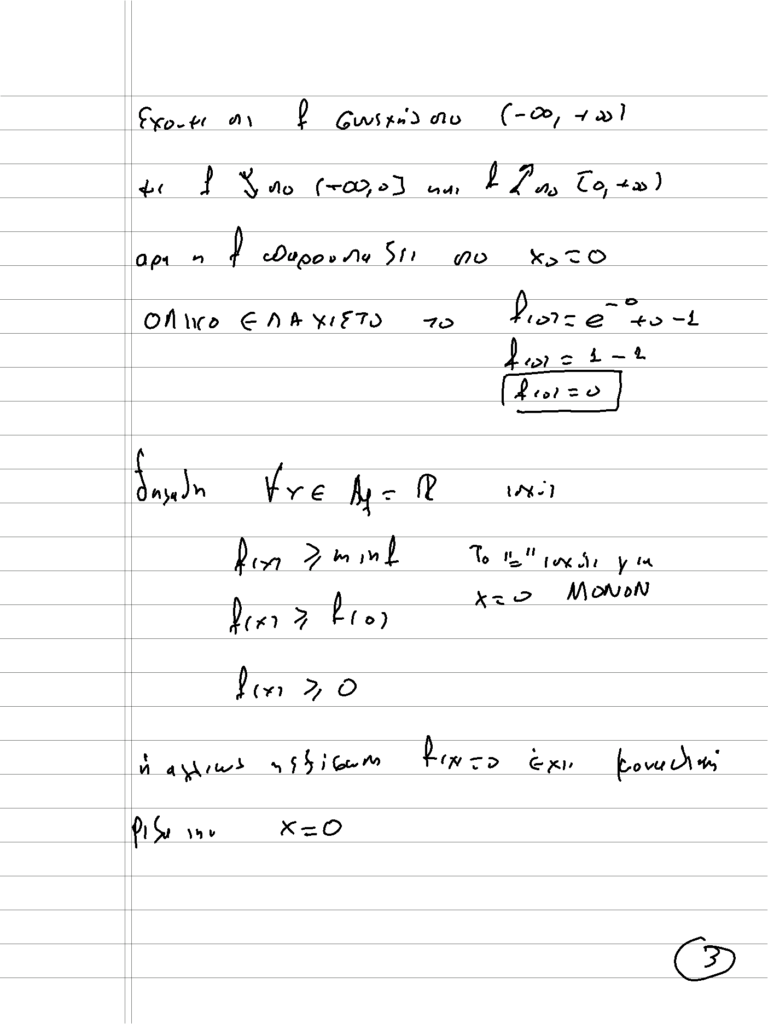 Έχουμε ότι f συνεχής στο (-∞, +∞)
με f ↘ στο (-∞, 0] και f ↗ στο [0, +∞)
άρα η f παρουσιάζει στο x₀ = 0
ΟΛΙΚΟ ΕΛΑΧΙΣΤΟ το f(0) = e⁻⁰ + 0 - 1
f(0) = 1 - 1
f(0) = 0
δηλαδή ∀x ∈ A_f = ℝ ισχύει
f(x) ≥ min f Το "=" ισχύει για
f(x) ≥ f(0) x = 0 ΜΟΝΟΝ
f(x) ≥ 0
ή αλλιώς η εξίσωση f(x) = 0 έχει μοναδική
ρίζα την x = 0
3